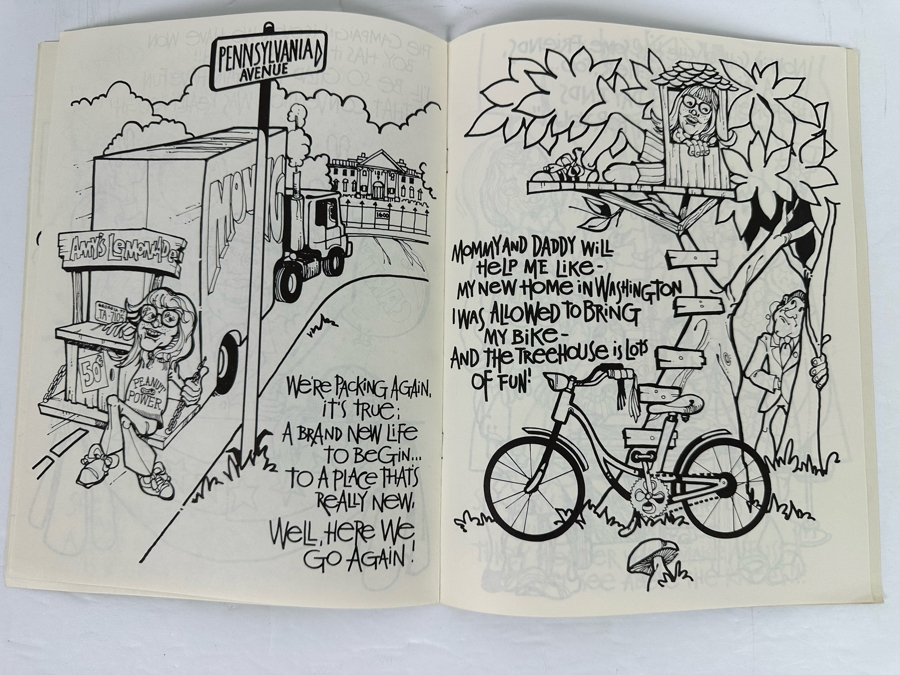 PENNSYLVANIA
AVENUE
MOVING
1600
AMY'S LEMONADE
50¢
PEANUT
POWER
WE'RE PACKING AGAIN,
IT'S TRUE;
A BRAND NEW LIFE
TO BEGIN...
TO A PLACE THAT'S
REALLY NEW,
WELL, HERE WE
GO AGAIN!
MOMMY AND DADDY WILL
HELP ME LIKE-
MY NEW HOME IN WASHINGTON
I WAS ALLOWED TO BRING
MY BIKE-
AND THE TREEHOUSE IS LOTS
OF FUN!